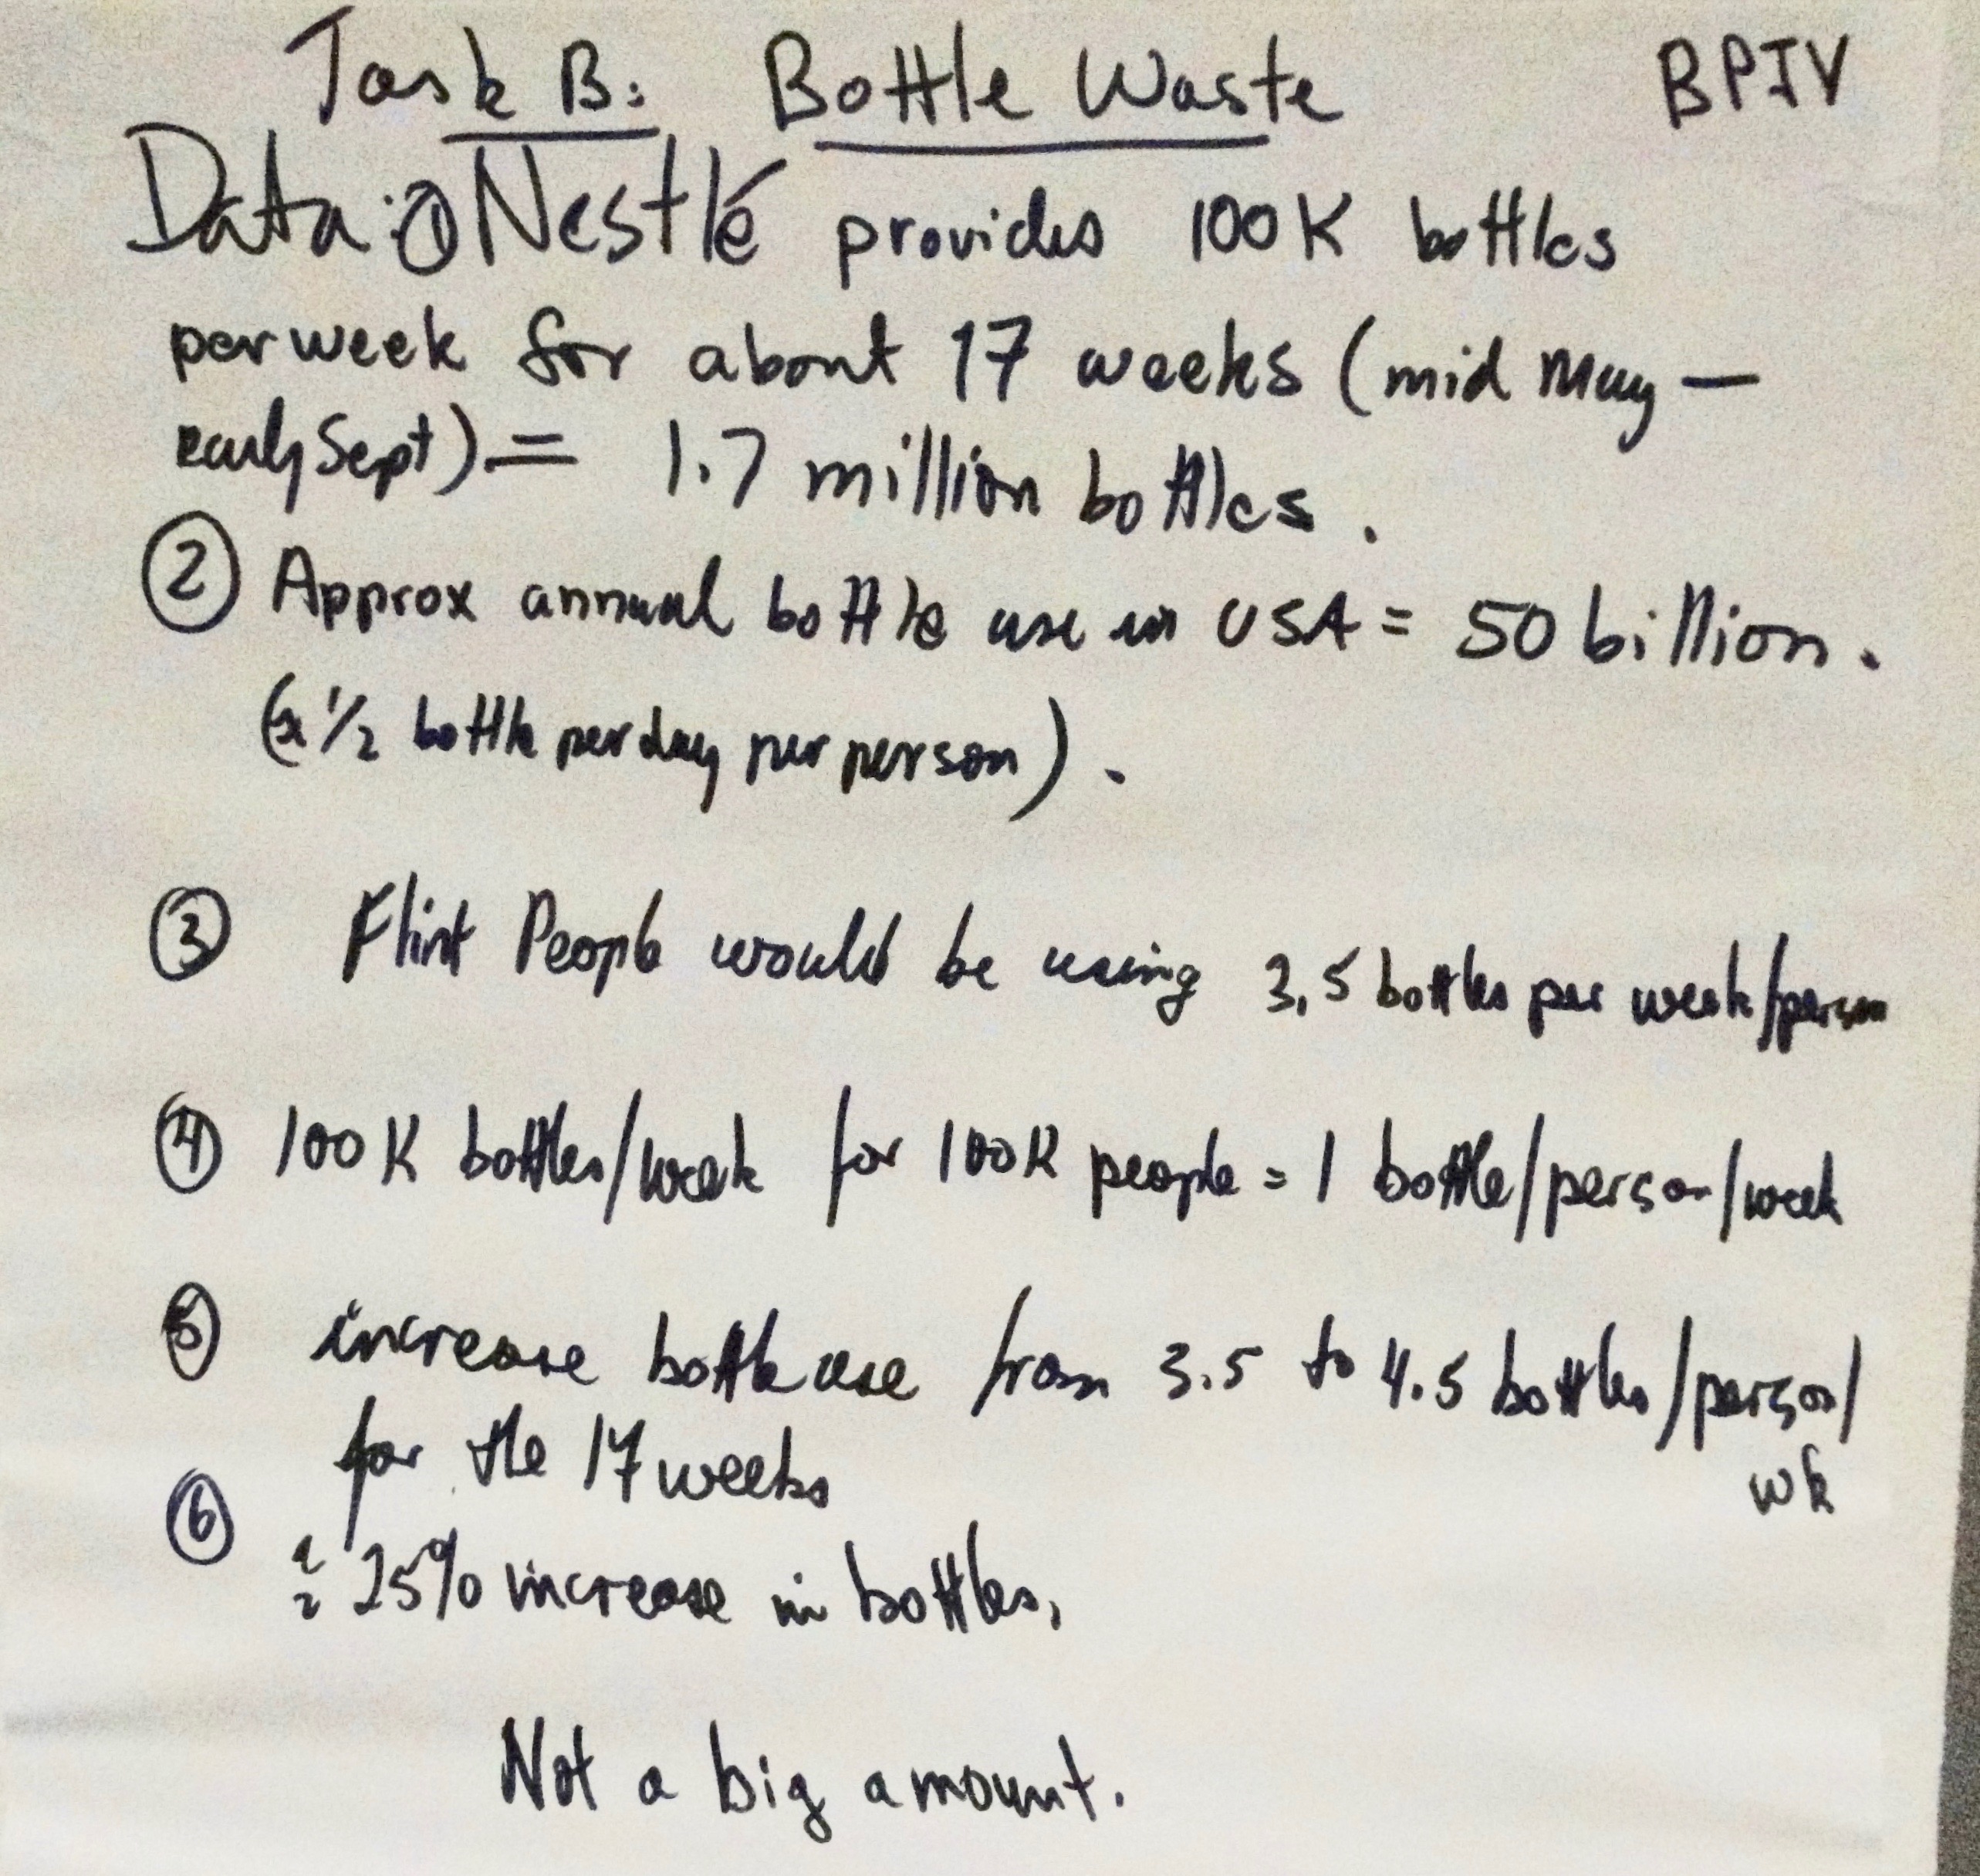 Task B: Bottle Waste BPIV
Data: ① Nestlé provides 100K bottles
per week for about 17 weeks (mid May —
early Sept) = 1.7 million bottles.
② Approx annual bottle use in USA = 50 billion.
(≈ 1/2 bottle per day per person).
③ Flint People would be using 3.5 bottles per week/person
④ 100K bottles/week for 100K people = 1 bottle/person/week
⑤ increase bottle use from 3.5 to 4.5 bottles/person/
wk
for the 17 weeks
⑥
≈ 25% increase in bottles.
Not a big amount.